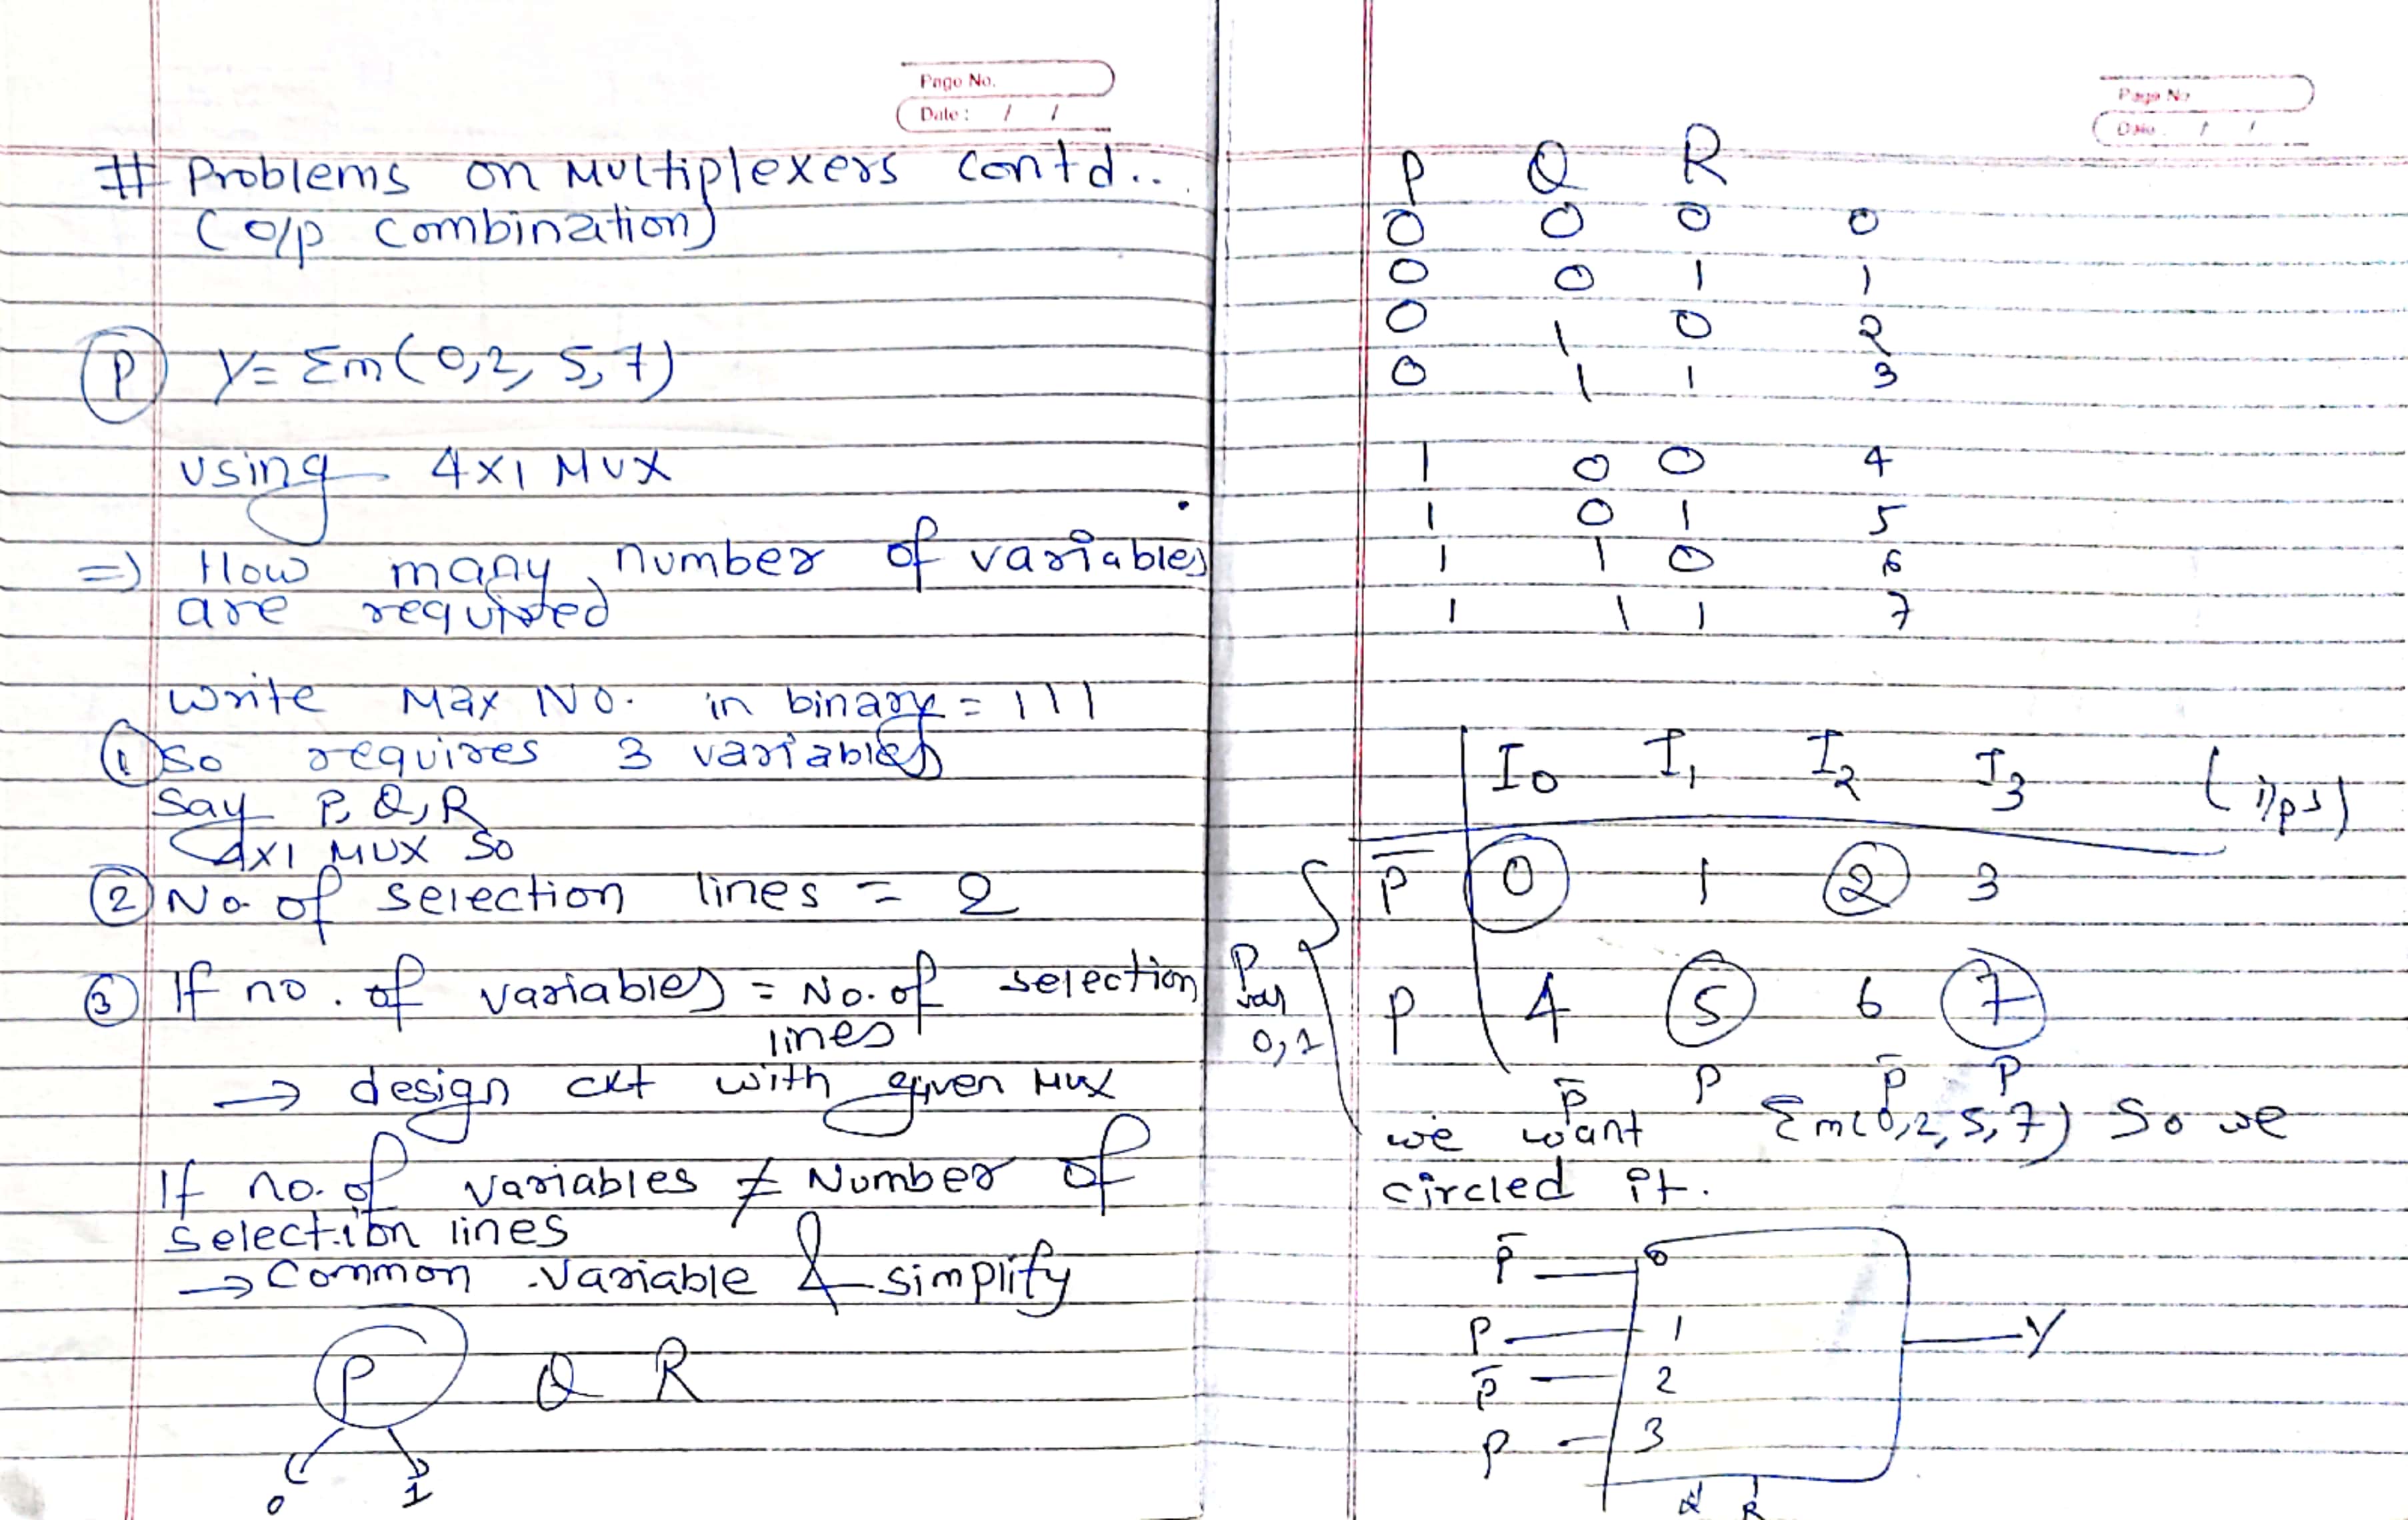 Page No.
Date : / /
# Problems on Multiplexers contd...
(o/p combination)
P Y= Σm(0,2,5,7)
using 4x1 MUX
=> How many number of variables
are required
write Max No. in binary = 111
① So requires 3 variables
Say P, Q, R
4x1 MUX So
② No. of selection lines = 2
③ If no. of variables = No. of selection
lines
→ design ckt with given Mux
If no. of variables ≠ Number of
selection lines
→ Common variable & simplify
P Q R
0 1
Page No
Date : / /
P Q R
0 0 0 0
0 0 1 1
0 1 0 2
0 1 1 3
1 0 0 4
1 0 1 5
1 1 0 6
1 1 1 7
I0 I1 I2 I3 (i/ps)
P̅ 0 1 2 3
P var 0,1
P 4 5 6 7
P̅ P P̅ P
we want Σm(0,2,5,7) So we
circled it.
P̅ 0
P 1 Y
P̅ 2
P 3
Q R